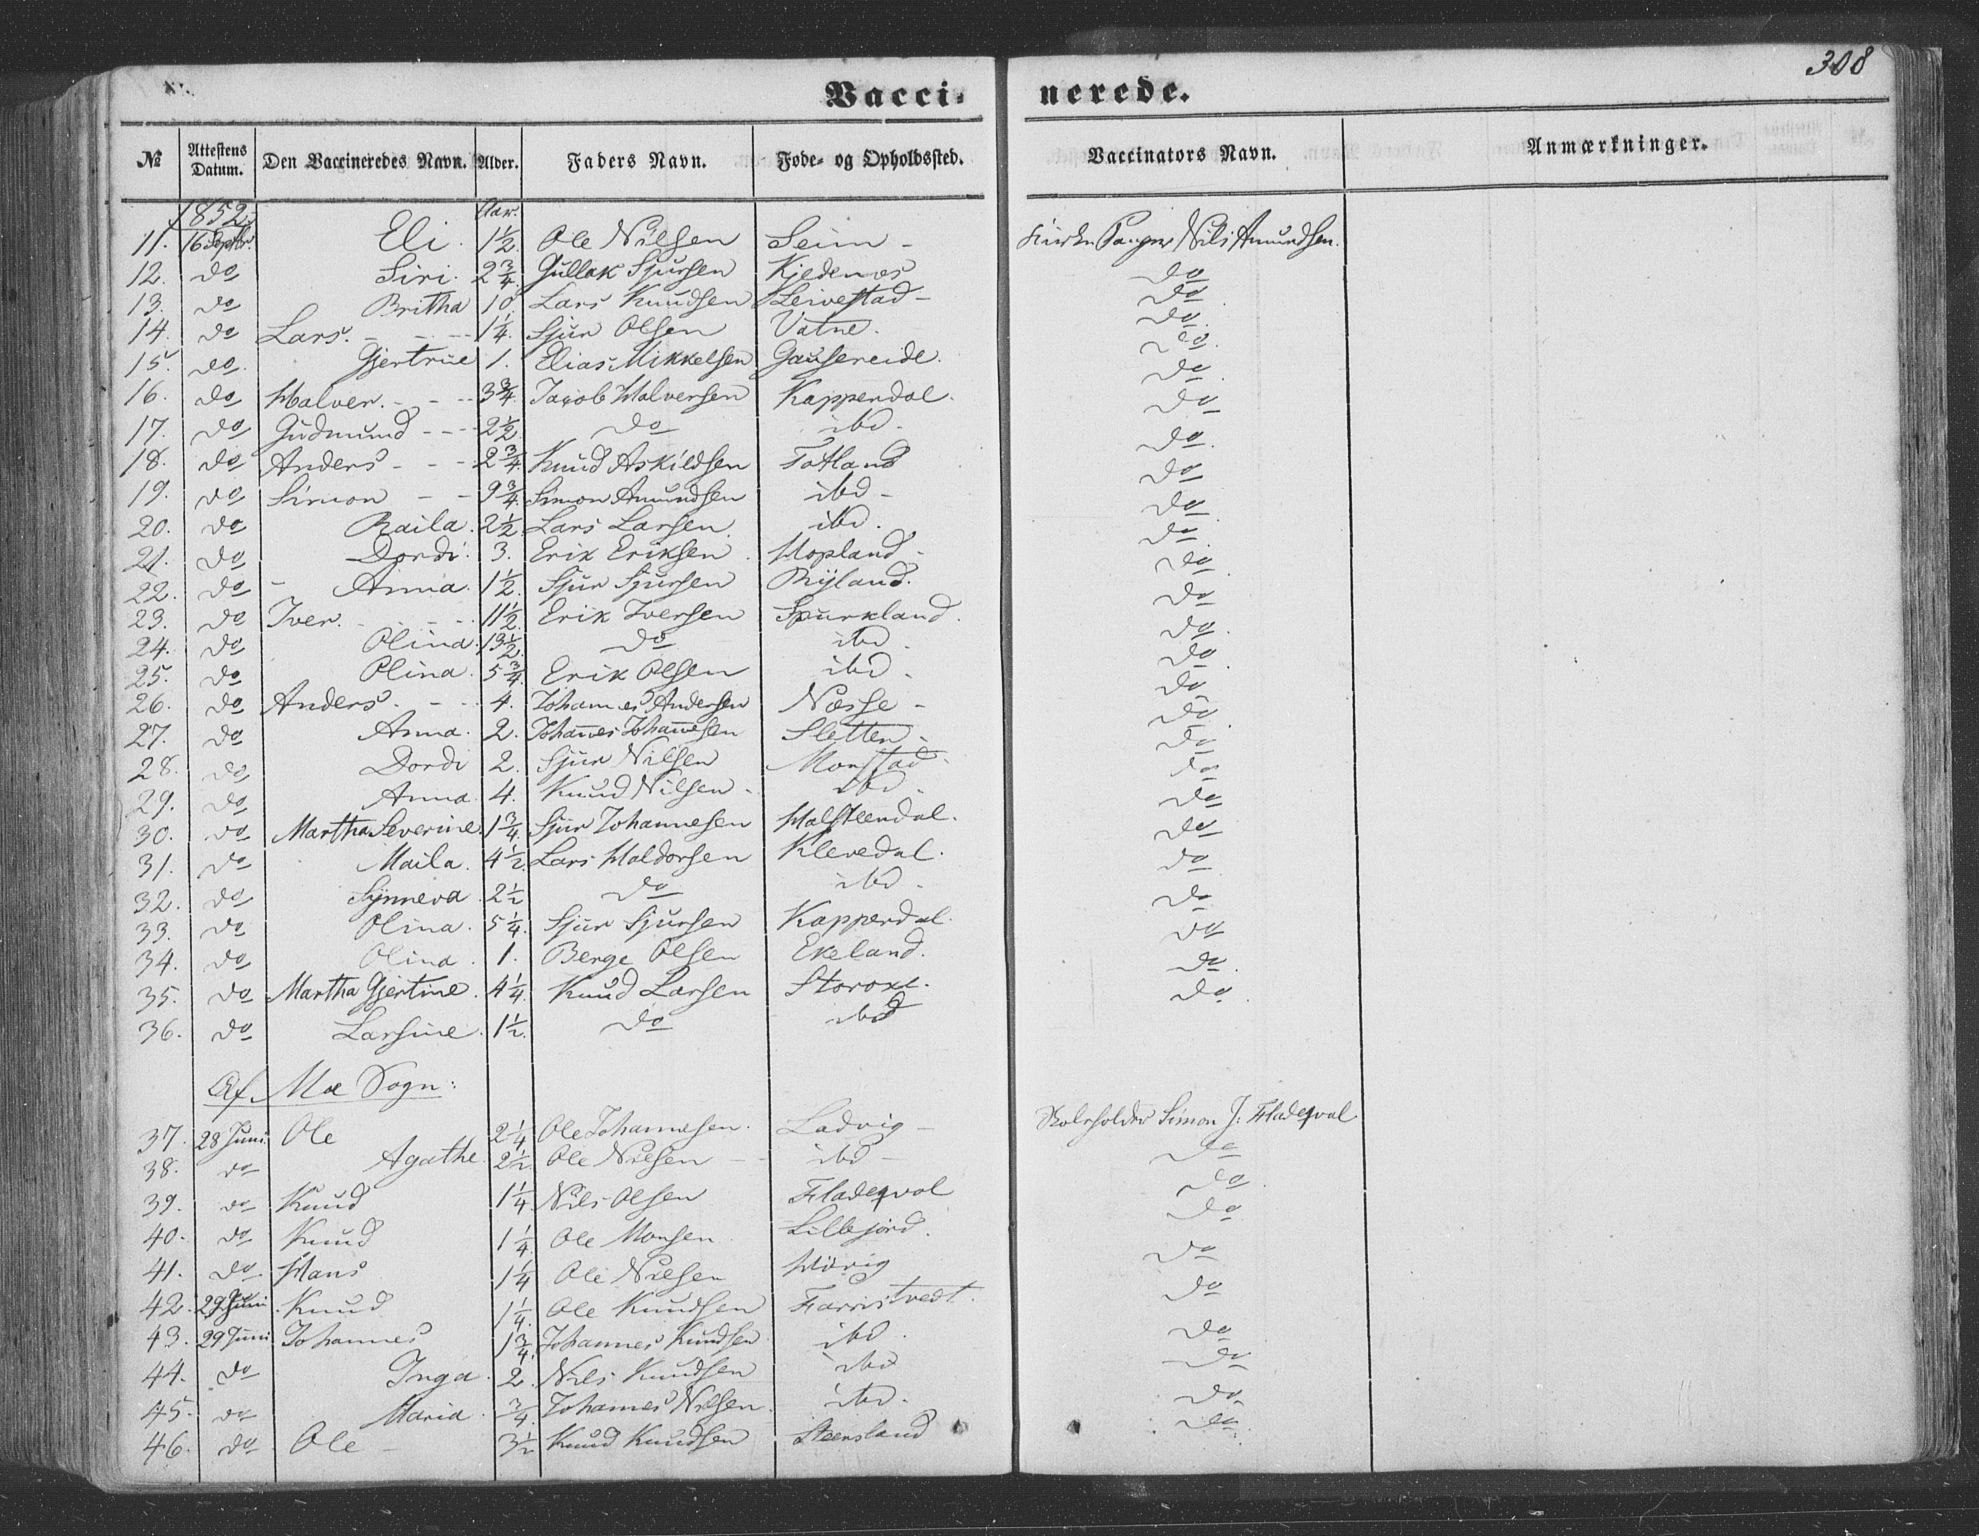 308
Vacci- nerede.
№ Attestens Datum. Den Vaccineredes Navn. Alder. Faders Navn. Føde- og Opholdssted. Vaccinators Navn. Anmærkninger.
1852. Aar.
11. 16 Septbr. Eli. 1½ Ole Nilsen Seim - Kirke Nils Amundsen.
12. do Siri. 2¾ Gullak Sjursen Kjedenæs do
13. do Britha 10 Lars Knudsen Leivestad - do
14. do Lars. - - - 1¼ Sjur Olsen Vatne. do
15. do. Gjertrue 1. Elias Mikkelsen Gausereide. do
16. do Halver. - - - 3¾ Jacob Halversen Kapperdal. do
17. do Gudmund - - - 2½ do ibd. do
18. do Anders - - - 2¾ Knud Askildsen Totland do
19. do Simon - - 9¾ Simon Amundsen ibd - do
20. do Raila. 2½ Lars Larsen ibd. do
21. do Dordi. 3. Erik Eriksen. Hopland - do
22. do - Anna. 1½ Sjur Sjursen Ryland. do
23. do Iver. - - - 11½ Erik Iversen Spurkland. do
24. do Olina. 13½ do ibd. do
25. do Olina. 5¾ Erik Olsen ibd. do
26. do Anders. - - 4. Johannes Andersen Næsse - do
27. do Anna. 2. Johanes Johanesen Sletten - do
28. do Dordi 2. Sjur Nilsen Monstad. do
29. do Anna. 4. Knud Nilsen - ibd. do
30. do Martha Severine. 1¾ Sjur Johannesen Halsteendal. do
31. do Maila. 4½ Lars Haldorsen Klevedal. do
32. do Synneva 2½ do ibd. do
33. do Olina. 5¼ Sjur Sjursen Kapperdal. do
34. do Olina. 1. Berge Olsen Ekeland. do
35. do Martha Gjertine. 4¼ Knud Larsen Storoxe. do
36. do Larsine. 1½ do ibd do
Af Mæ Sogn:
37. 28 Juni Ole 2¼ Ole Johannesen. Ladvig - Skoleholder Simon J: Fladeqval
38. do Agathe. 2½ Ole Nilsen - - ibd - do
39. do Knud 1¼ Nils Olsen Fladeqval do
40. do Knud 1¼ Ole Monsen Lillejord. do
41. do Hans 1¼ Ole Nilsen Hdvig do
42. 29 Juni Knud 1¼ Ole Knudsen Farristvedt. do
43. 29 Juni Johannes 1¾ Johannes Knudsen ibd. do
44. do Inga. 2. Nils Knudsen ibd do
45. do Maria. ¾ Johannes Nilsen. ibd. do
46. do Ole - 3½ Knud Knudsen Steensland do